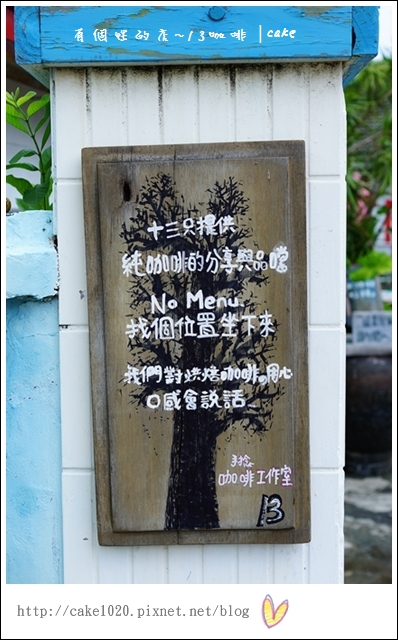 有個性的店~13咖啡|cake
十三只提供
純咖啡的分享與品嚐
No Menu.
找個位置坐下來
我們對烘焙咖啡の用心
口感會說話
手捻
咖啡工作室
13
http://cake1020.pixnet.net/blog